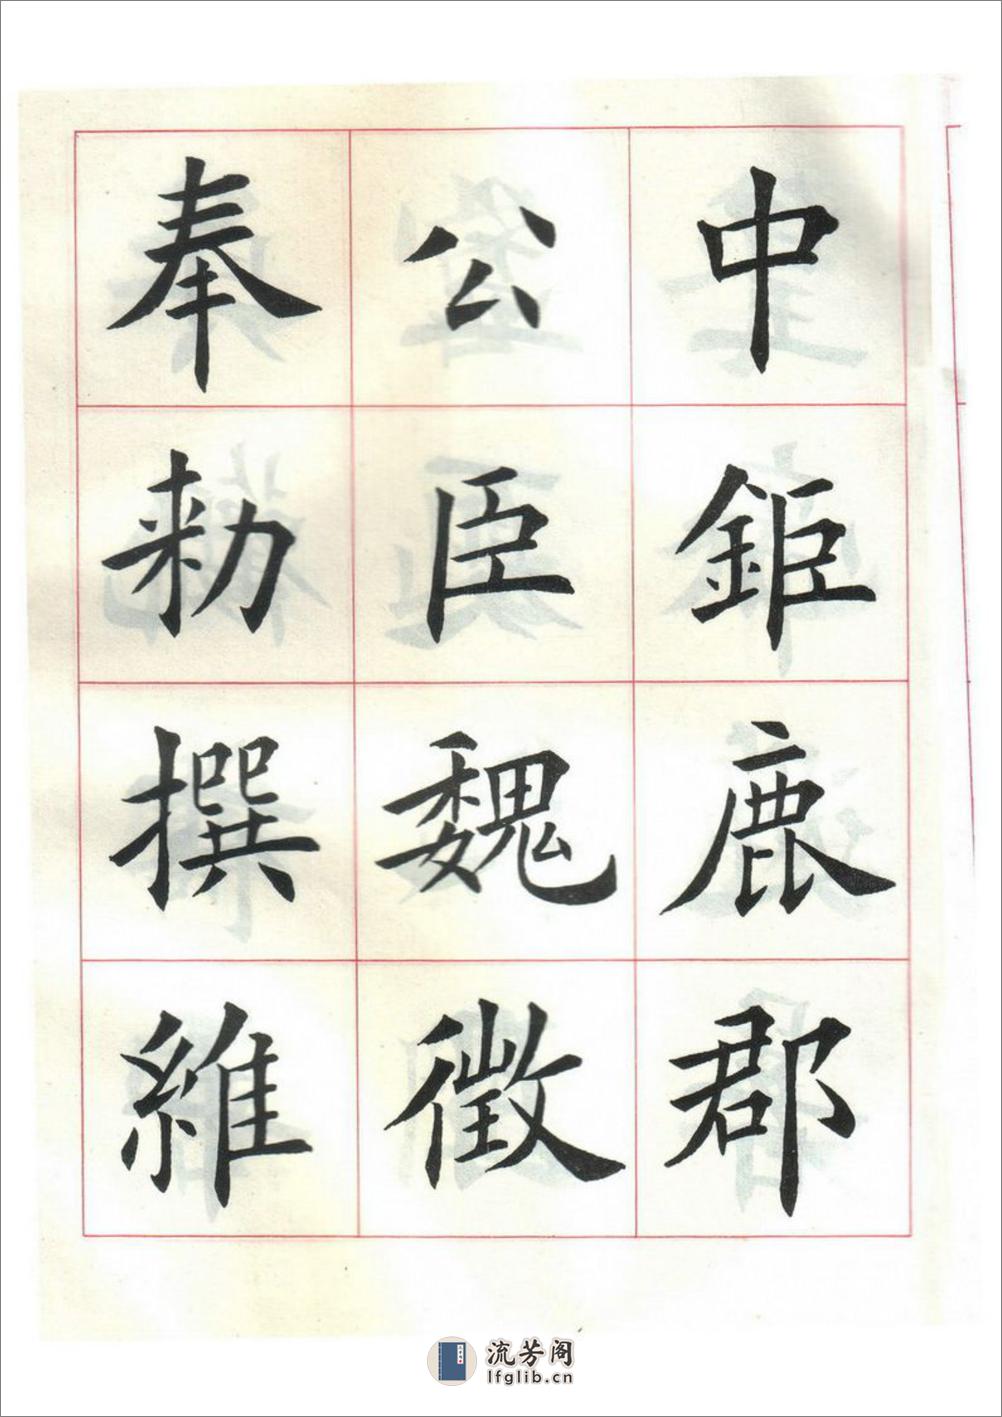 中鉅鹿郡
公臣魏徵
奉勑撰維
流芳阁
lfglib.cn